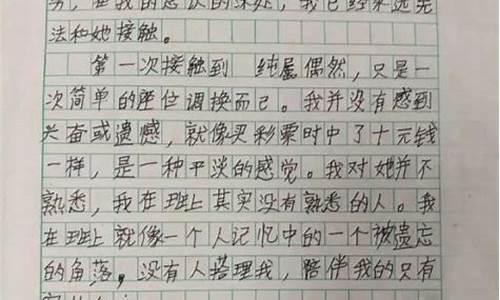 务，在我的意识的深处，我已经来远无
法和她接触。
第一次接触到 纯属偶然，只是一
次简单的座位调换而已。我并没有感到
兴奋或遗憾，就像买彩票时中了十元钱
一样，是一种平淡的感觉。我对她并不
熟悉，我在班上其实没有熟悉的人。我
在班上就像一个人记忆中的一个被遗忘
的角落，没有人搭理我，陪伴我的只有